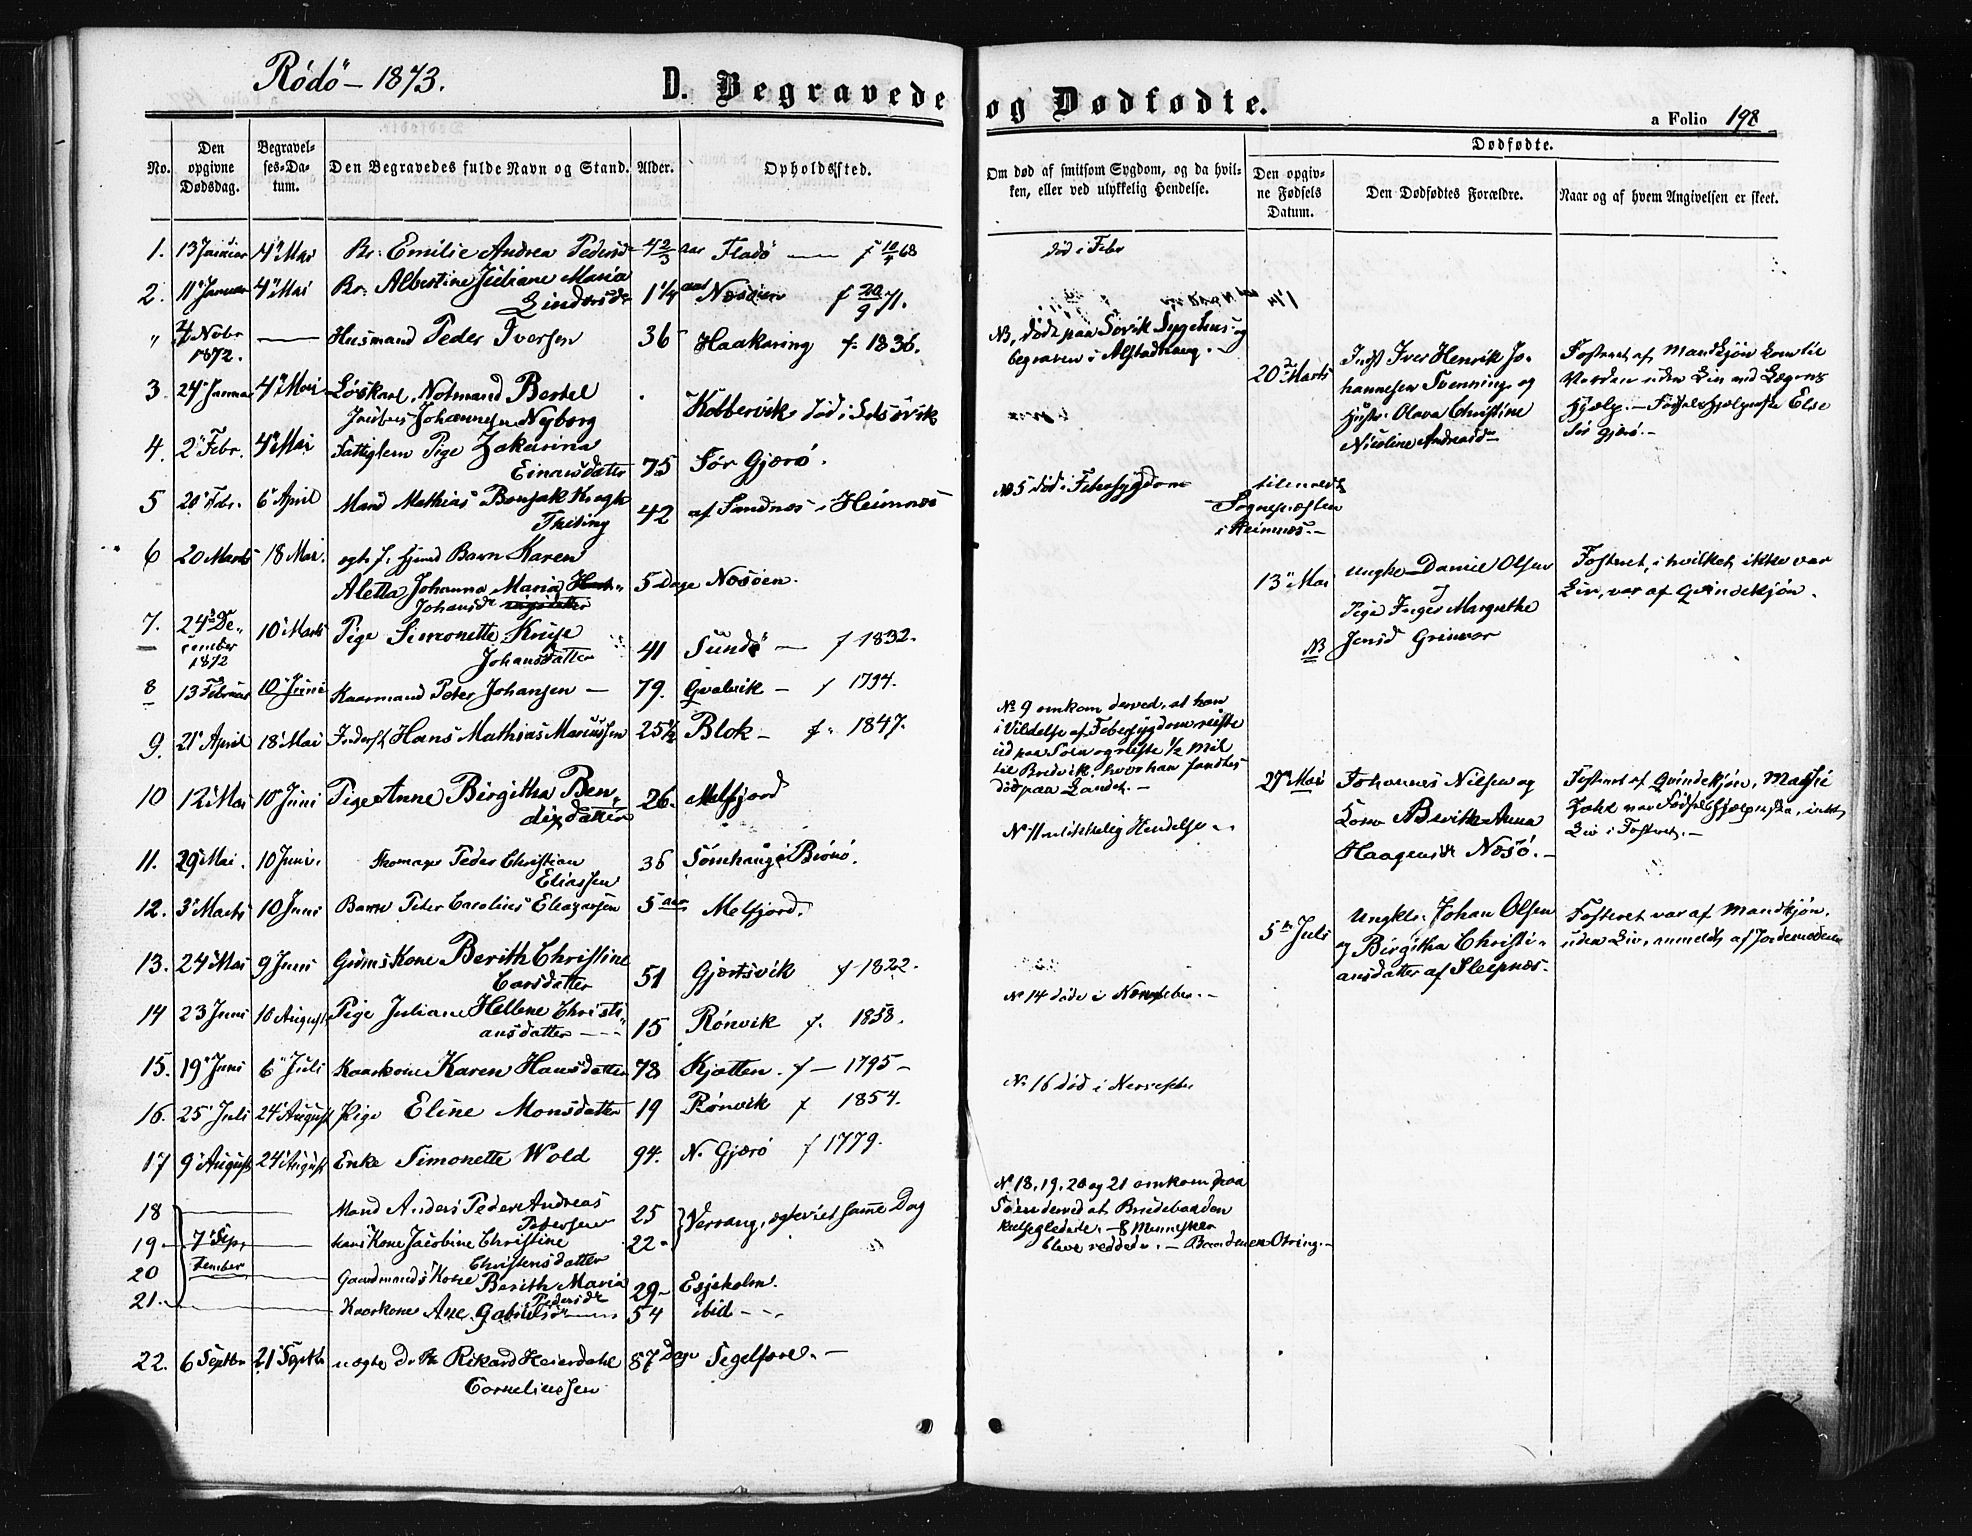 Rödö – 1873.
D. Begravede
No.
Den opgivne Dødsdag.
Begravelses-Datum.
Den Begravedes fulde Navn og Stand.
Alder.
Opholdssted.
1. 13 Januar 4 Mai Br: Emilie Andrea Pedersd 4 2/3 aar Fladö — f 10/5 68
2. 11 Januar 4 Mai Br: Albertine Juliane Maria
Lindersd 1 1/4 aar Nesöen f 20/9 71.
" 4 Nvbr — Husmand Peder Iversen 36 Haakaring f. 1836.
1872.
3 24 Januar 4 Mai Löskarl, Notmand Bertel
Johannesen Nyborg Kobbervik, död i
4. 2 Febr. 4 Mai Fattiglem Pige Zakarina
Einarsdatter 75 Sör Gjærö.
5 20 Febr. 6 April Mand Mathias Bonsak Krogh
42 af Sandnes i Heimnes
6 20 Marts 18 Mai. Barn Karen
Aletta Johanna Maria
Johansd 5 Dage Nesöen.
7. 24 December 1872 10 Marts Pige Simonette
Johansdatter 41 Sundö — f 1832.
8 13 Februar 10 Juni Kaarmand Peter Johansen — 79. Gvalvik – f 1794.
9. 21 April 18 Mai Hans Mathias Mariussen 25 1/2 Blok – f. 1847.
10 12 Mai 10 Juni Pige Anne Birgitha Bendixdatter 26. Melfjord
11. 29 Mai. 10 Juni. Peder Christian
Eliassen 36 Sömhaug i Brönö.
12. 3 Marts 10 Juni Barn Peter Carolius Eleazarsen 5 aar Melfjord.
13. 24 Mai 9 Juni Kone Berith Christine
Larsdatter 51 Gjersvik f 1822.
14 23 Juni 10 August Pige Juliane Hellene Christiansdatter 15 Rönvik f. 1858.
15. 19 Juni 6 Juli Kaarkone Karen Hansdatter 78 Kjatten. f – 1795 –
16. 25 Juli 24 August Pige Eline Monsdatter 19 Rönvik f 1854.
17 9 August 24 August Enke Simonette Wold 94. N. Gjærö f 1779.
18 Mand Anders Peder Andreas
Petersen 25 Værang, ægteviet samme Dag
19 7 September hans Kone Jacobine Christine
Christensdatter 22
20 Gaardmands Kone Berith Maria
Pedersd 29 – Esjeholm.
21. Kaarkone Ane Gabrielsd 54 ibid –
22. 6 Septbr 21 Septbr uægte Rikard Heierdahl
Corneliussen 87 Dage Segelfore. –
og Dødfødte.
a Folio 198
Om død af smitsom Sygdom, og da hvilken, eller ved ulykkelig Hendelse.
Dødfødte.
Den opgivne Fødsels Datum.
Den Dødfødtes Forældre.
Naar og af hvem Angivelsen er skeet.
död i Febr
NB, döde paa Sövik Sygehus og
begraven i Alstadhaug. –
20 Marts Indst Iver Henrik Johannesen Svenning og
Hustr. Olava Christine
Nicoline Andreasd
Fosteret af Mandkjön kom til
Verden uden Liv ved Lægens
Hjælp. – Else
Sör Gjærö. –
No 5 död i Febersygdom
tilmeldt
Sognepræsten
i Heimnes. –
13 Mai Ungkr Daniel Olsen
Pige Inger Margrethe
NB Jensd Grinvær
Fosteret, i hvilket ikke var
Liv, var af Qvindekjön.
No 9 omkom derved, at han
i Vildelse af Febersygdom reiste
ud paa Söen og reiste 1/2 Mil
til Bredvik, hvor han fandtes
död paa Landet. –
27 Mai Johannes Nilsen og
Kone Berith Anna
Haagensd Nesö. –
Fosteret af Qvindekjön,
intet
Liv i Fosteret. –
No 11 ulykkelig Hendelse
5 Juli Ungkr. Johan Olsen
og Birgitha Christiansdatter af Sleipnes.
Fosteret var af Mandkjön,
uden Liv, anmeldt af Jordemoderen
No 14 döde i Nervefeber. –
No 16 död i Nervefeber
No 18, 19, 20 og 21 omkom paa
Söen derved at Brudebaaden
kulseglede. – 8 Mennesker
bleve reddede. –